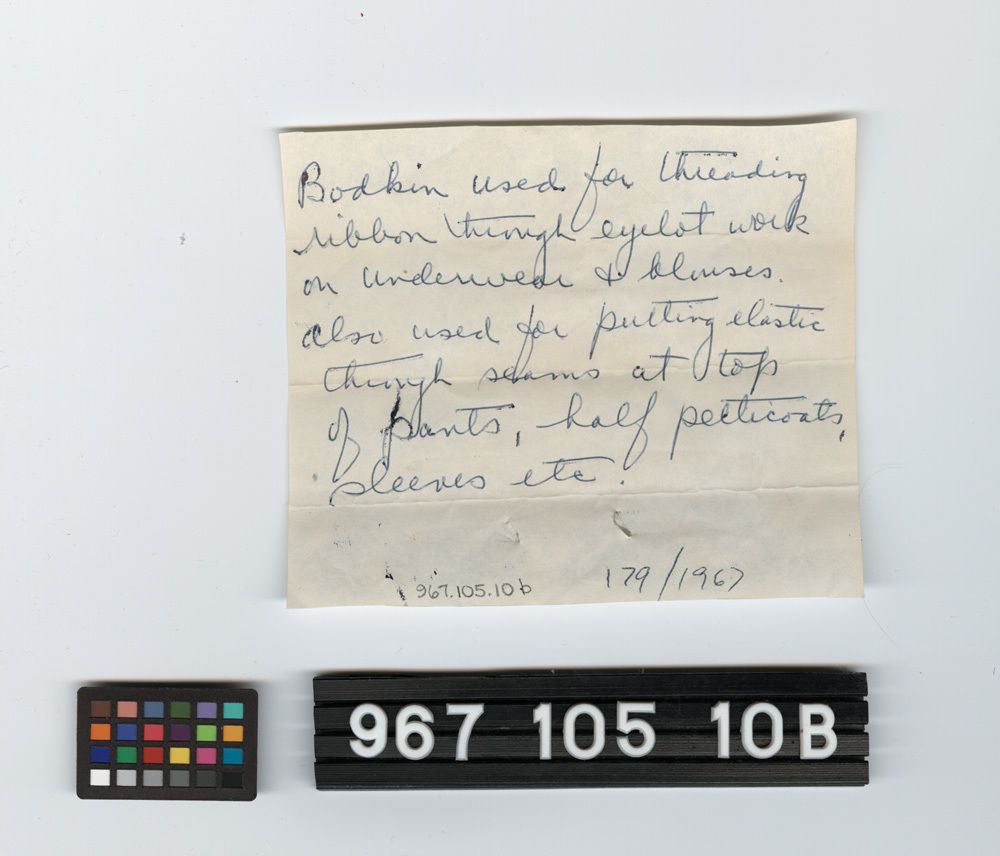 Bodkin used for threading
ribbon through eyelot work
on underwear & blouses.
also used for putting elastic
through seams at top
of pants, half petticoats,
sleeves etc.
967.105.10b 179/1967
967 105 10B